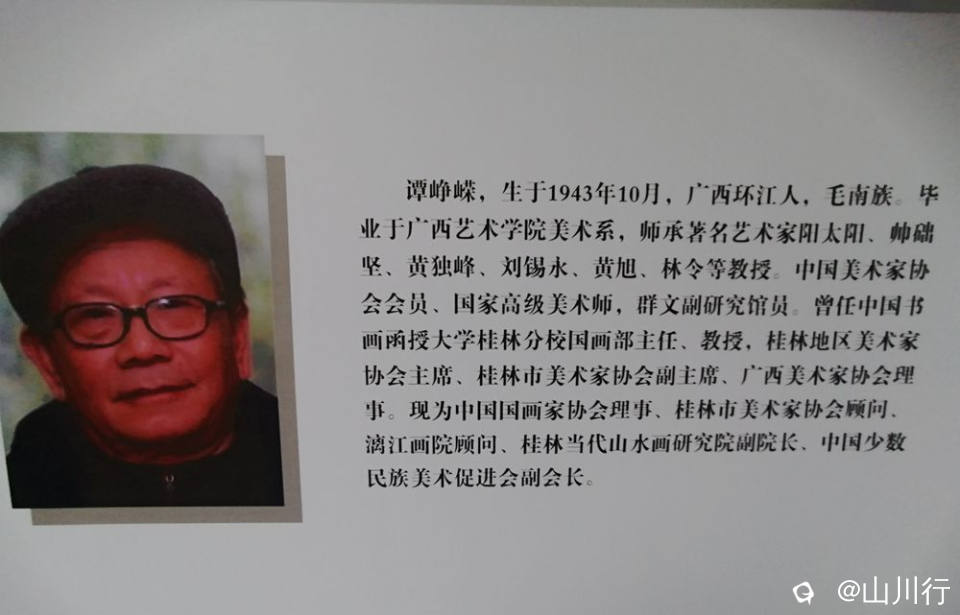 谭峥嵘，生于1943年10月，广西环江人，毛南族。毕
业于广西艺术学院美术系，师承著名艺术家阳太阳、帅础
坚、黄独峰、刘锡永、黄旭、林令等教授。中国美术家协
会会员、国家高级美术师，群文副研究馆员。曾任中国书
画函授大学桂林分校国画部主任、教授，桂林地区美术家
协会主席、桂林市美术家协会副主席、广西美术家协会理
事。现为中国国画家协会理事、桂林市美术家协会顾问、
漓江画院顾问、桂林当代山水画研究院副院长、中国少数
民族美术促进会副会长。
@山川行